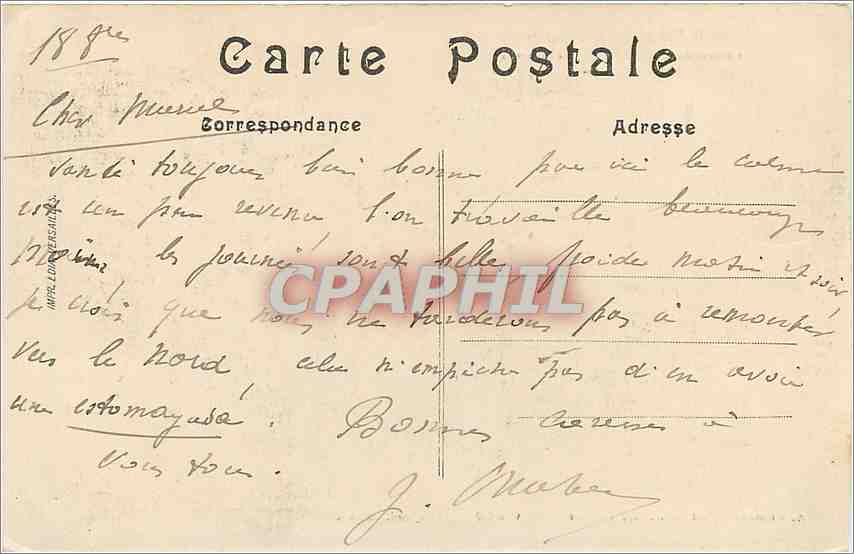 18 8bre
Carte Postale
Cher
Correspondance
Adresse
santé toujours bien bonne par ici le calme
est un peu revenu l'on travaille beaucoup
les journées sont belles froides matin et soir
je crois que nous ne tarderons pas à remonter
vers le Nord, cela n'empêche pas d'en avoir
une estomagada. Bonnes caresses à
vous tous.
J.
IMP. EDIA VERSAILLES.
CPAPHIL